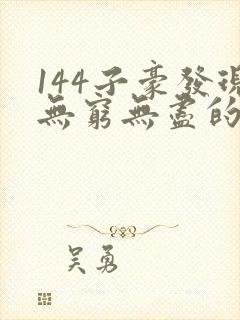 144子豪發現
無窮無盡的
吳勇